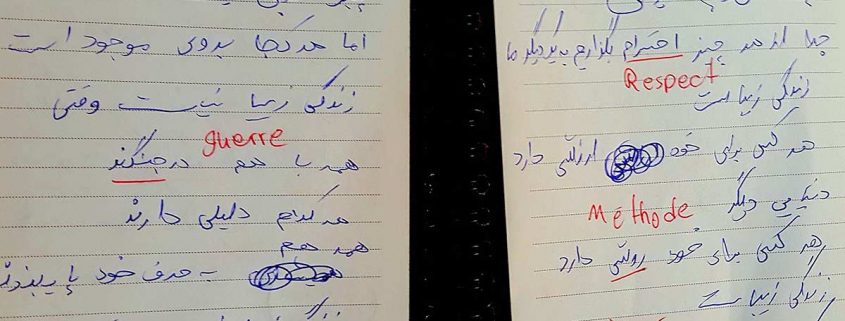 جدا از هر چیز احترام بگذاریم به یکدیگر ما
Respect
زندگی زیباست
هر کس برای خود ارزشی دارد
دیگر Méthode
هر کسی برای خود روشی دارد
زندگی زیباست
اما هر کجا بروی موجود است
زندگی زیبا نیست وقتی
guerre
همه با هم در جنگند
هر کدام دلیلی دارند
همه هم
به حرف خود پایبندند